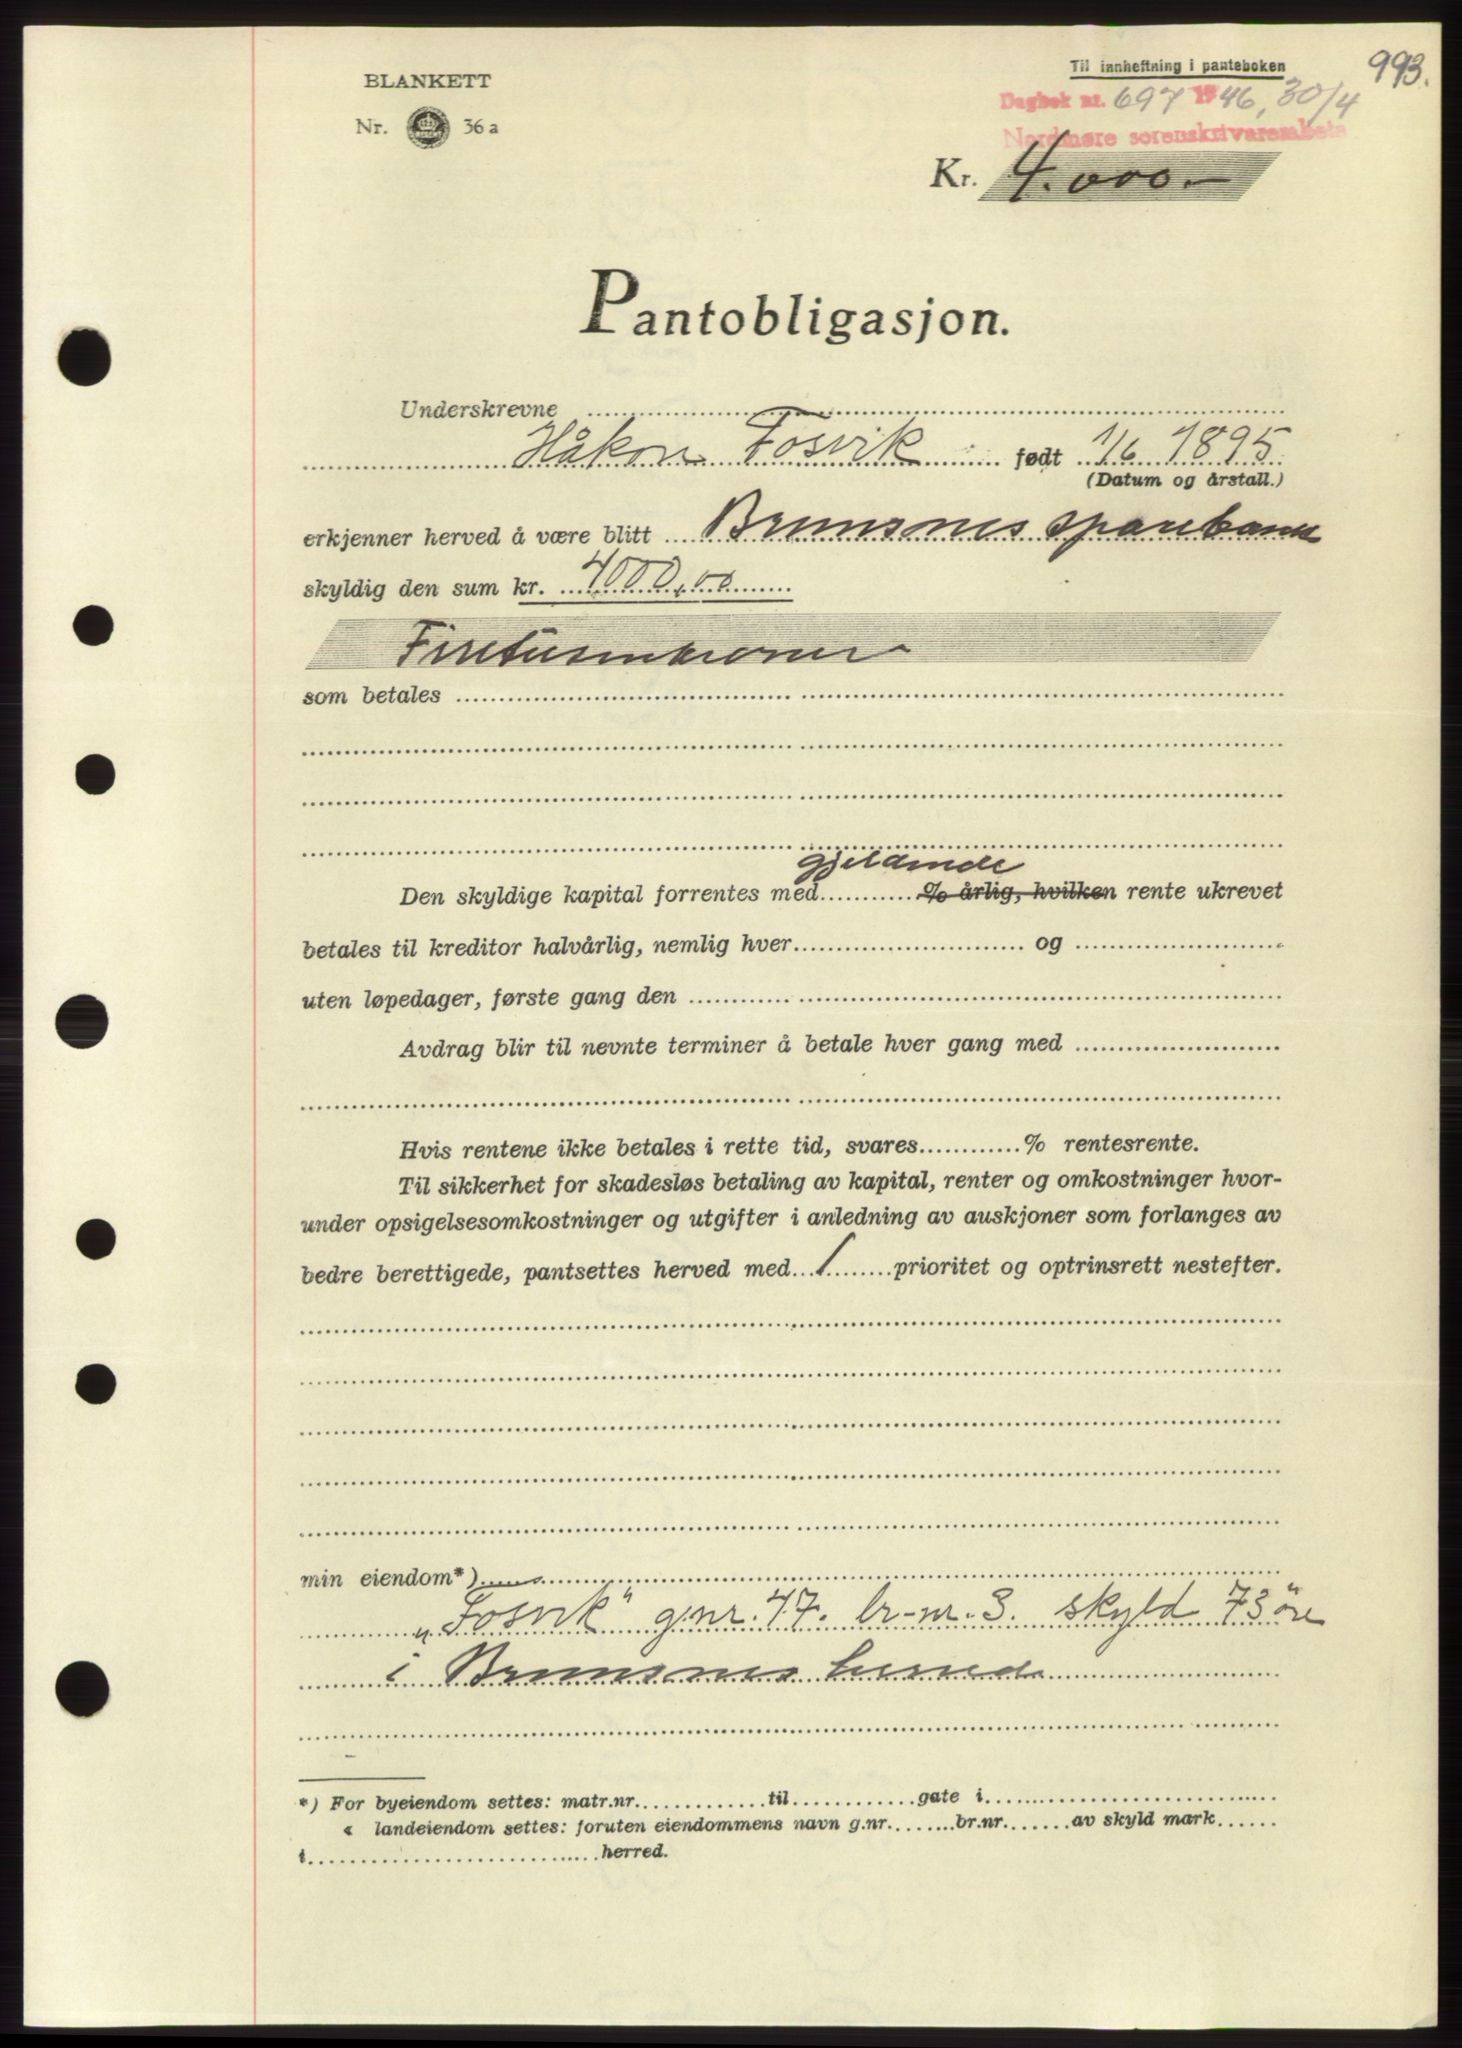 993.
Til innheftning i panteboken
BLANKETT
Dagbok nr. 697 1946, 30/4
Nr. 36 a
Nordmøre sorenskrivarembete
Kr. 4.000.-
Pantobligasjon.
Underskrevne
Håkon Fosvik født 1/6 1895
(Datum og årstall.)
erkjenner herved å være blitt Bremsnes sparebank
skyldig den sum kr. 4000,00
Firetusenkroner
som betales
gjeldende
Den skyldige kapital forrentes med % årlig, hvilken rente ukrevet
betales til kreditor halvårlig, nemlig hver og
uten løpedager, første gang den
Avdrag blir til nevnte terminer å betale hver gang med
Hvis rentene ikke betales i rette tid, svares % rentesrente.
Til sikkerhet for skadesløs betaling av kapital, renter og omkostninger hvor-
under opsigelsesomkostninger og utgifter i anledning av auskjoner som forlanges av
bedre berettigede, pantsettes herved med 1 prioritet og optrinsrett nestefter.
min eiendom*)
„Fosvik" g.nr. 47. br-nr. 3. skyld 73 øre
i Bremsnes herred
*) For byeiendom settes: matr.nr. til gate i
« landeiendom settes: foruten eiendommens navn g.nr. br.nr. av skyld mark
i herred.